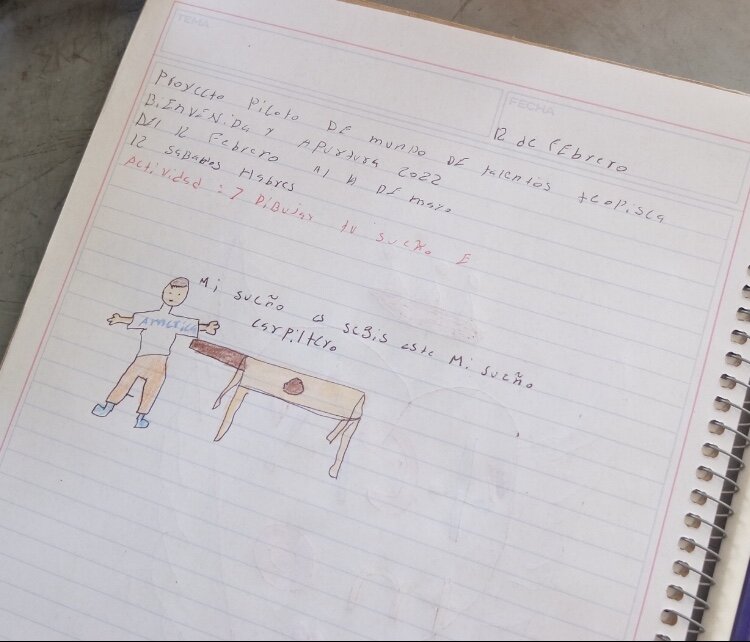 TEMA
FECHA
12 de FEbrero
Proyecto Piloto DE mundo DE talentos teopisca
BiEnvENida y Apurtura 2022
DEl 12 Febrero Al 14 DE mayo
12 sabados Habres
Actividad : 7 Dibujar tu sueño E
Mi sueño es seguis este Mi sueño
carpiltero
America